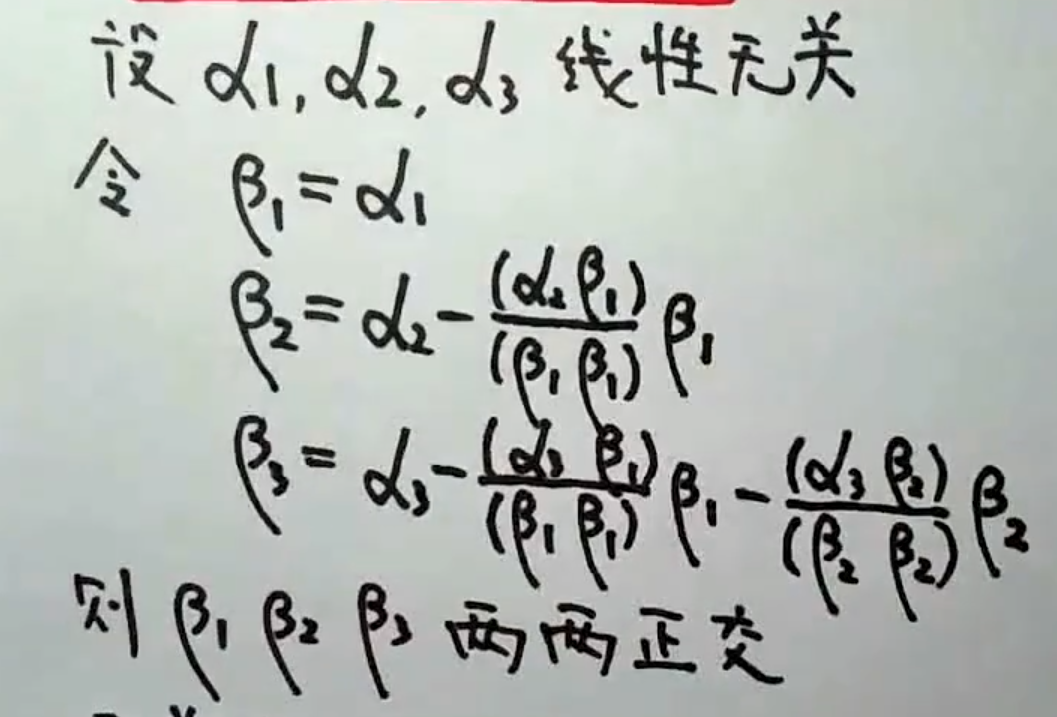 设 α1, α2, α3 线性无关
令 β1 = α1
β2 = α2 - (α2 β1)/(β1 β1) β1
β3 = α3 - (α3 β1)/(β1 β1) β1 - (α3 β2)/(β2 β2) β2
则 β1 β2 β3 两两正交